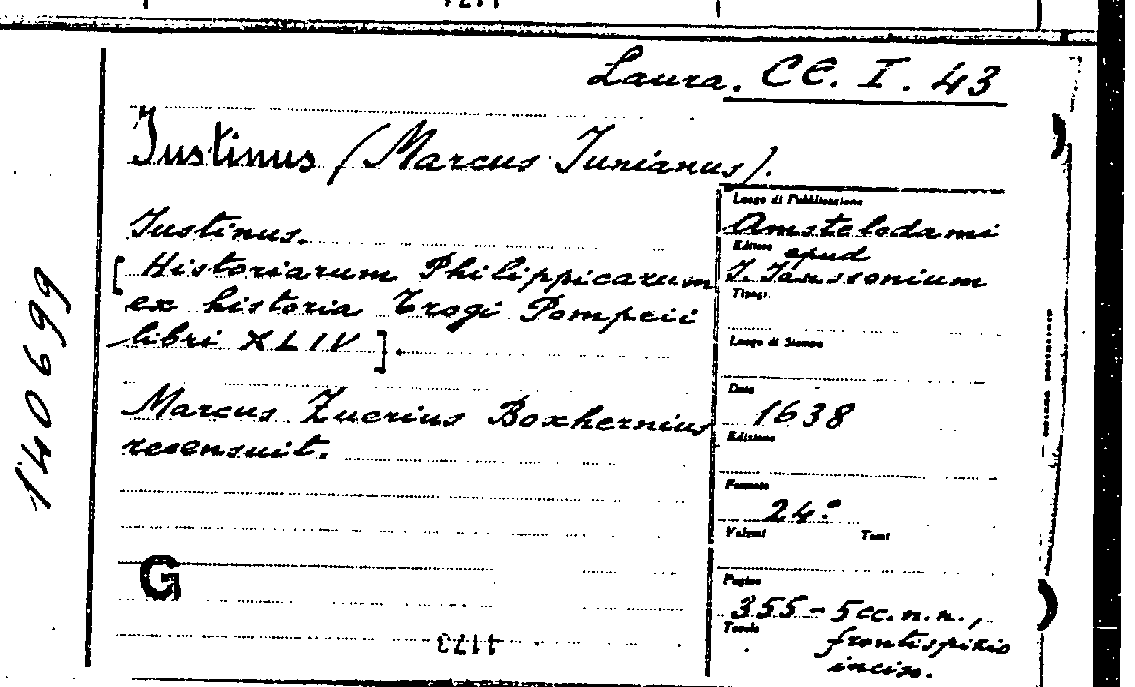 Laura. CC. I. 43
Iustinus (Marcus Iunianus).
Iustinus.
[Historiarum Philippicarum
ex historia Trogi Pompeii
libri XLIV].
Marcus Zuerius Boxhernius
recensuit.
G
1173
140699
Luogo di Pubblicazione
Amstelodami
Editore
apud
J. Janssonium
Tipogr.
Luogo di Stampa
Data
1638
Edizione
Formato
24º
Volumi Tomi
Pagine
355 - 5 cc. n. n.,
Tavole
frontispizio
inciso.